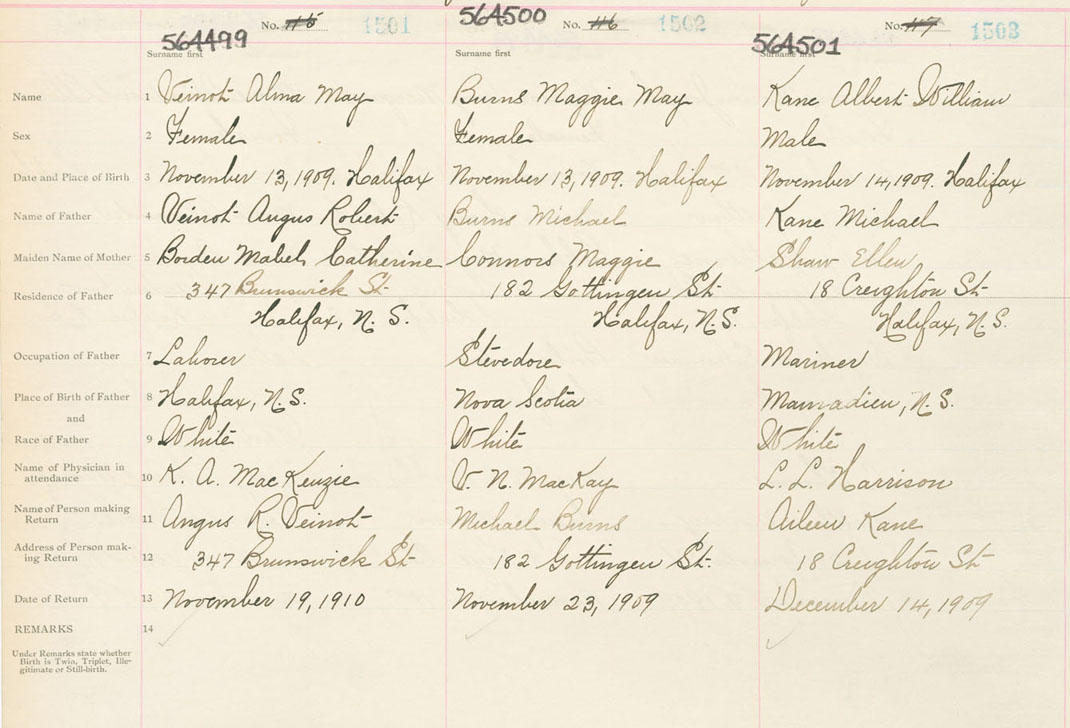 564499 No. #5 1501
564500 No. #6 1502
564501 No. #7 1503
Surname first Surname first Surname first
Name 1 Veinot Alma May Burns Maggie May Kane Albert William
Sex 2 Female Female Male
Date and Place of Birth 3 November 13, 1909. Halifax November 13, 1909. Halifax November 14, 1909. Halifax
Name of Father 4 Veinot Angus Robert Burns Michael Kane Michael
Maiden Name of Mother 5 Borden Mabel Catherine Connors Maggie Shaw Ellen
Residence of Father 6 347 Brunswick St 182 Gottingen St 18 Creighton St
Halifax, N. S. Halifax, N.S. Halifax, N.S.
Occupation of Father 7 Laborer Stevedore Mariner
Place of Birth of Father 8 Halifax, N.S. Nova Scotia N.S.
and
Race of Father 9 White White White
Name of Physician in attendance 10 K. A. MacKenzie V. N. MacKay L. L. Harrison
Name of Person making Return 11 Angus R. Veinot Michael Burns Aileen Kane
Address of Person mak-
ing Return 12 347 Brunswick St 182 Gottingen St. 18 Creighton St
Date of Return 13 November 19, 1910 November 23, 1909 December 14, 1909
REMARKS 14
Under Remarks state whether
Birth is Twin, Triplet, Ille-
gitimate or Still-birth.